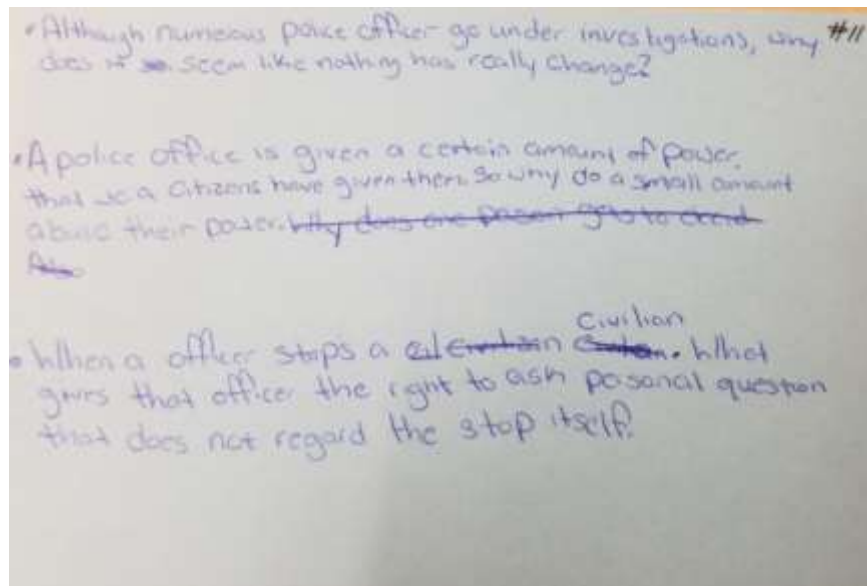 • Although numerous police officer go under investigations, why #11
does it seem like nothing has really change?
• A police office is given a certain amount of power
that we a citizens have given them. So why do a small amount
abuse their power. Why does one person gets to decid
• When a officer stops a civilian. What
gives that officer the right to ask personal question
that does not regard the stop itself?